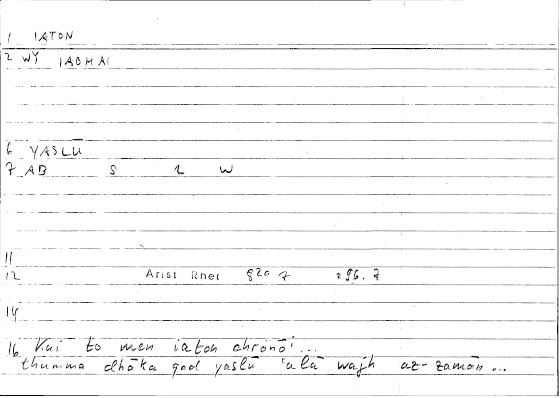 1 IATON
2 WY IAOMAI
6 YASLŪ
7 AB S L W
11
12 Arist Rhet 82a 7 296.7
14
16 Kai to men iaton chronō'...
thumma dhāka qad yaslū 'alā wajh az-zamān...